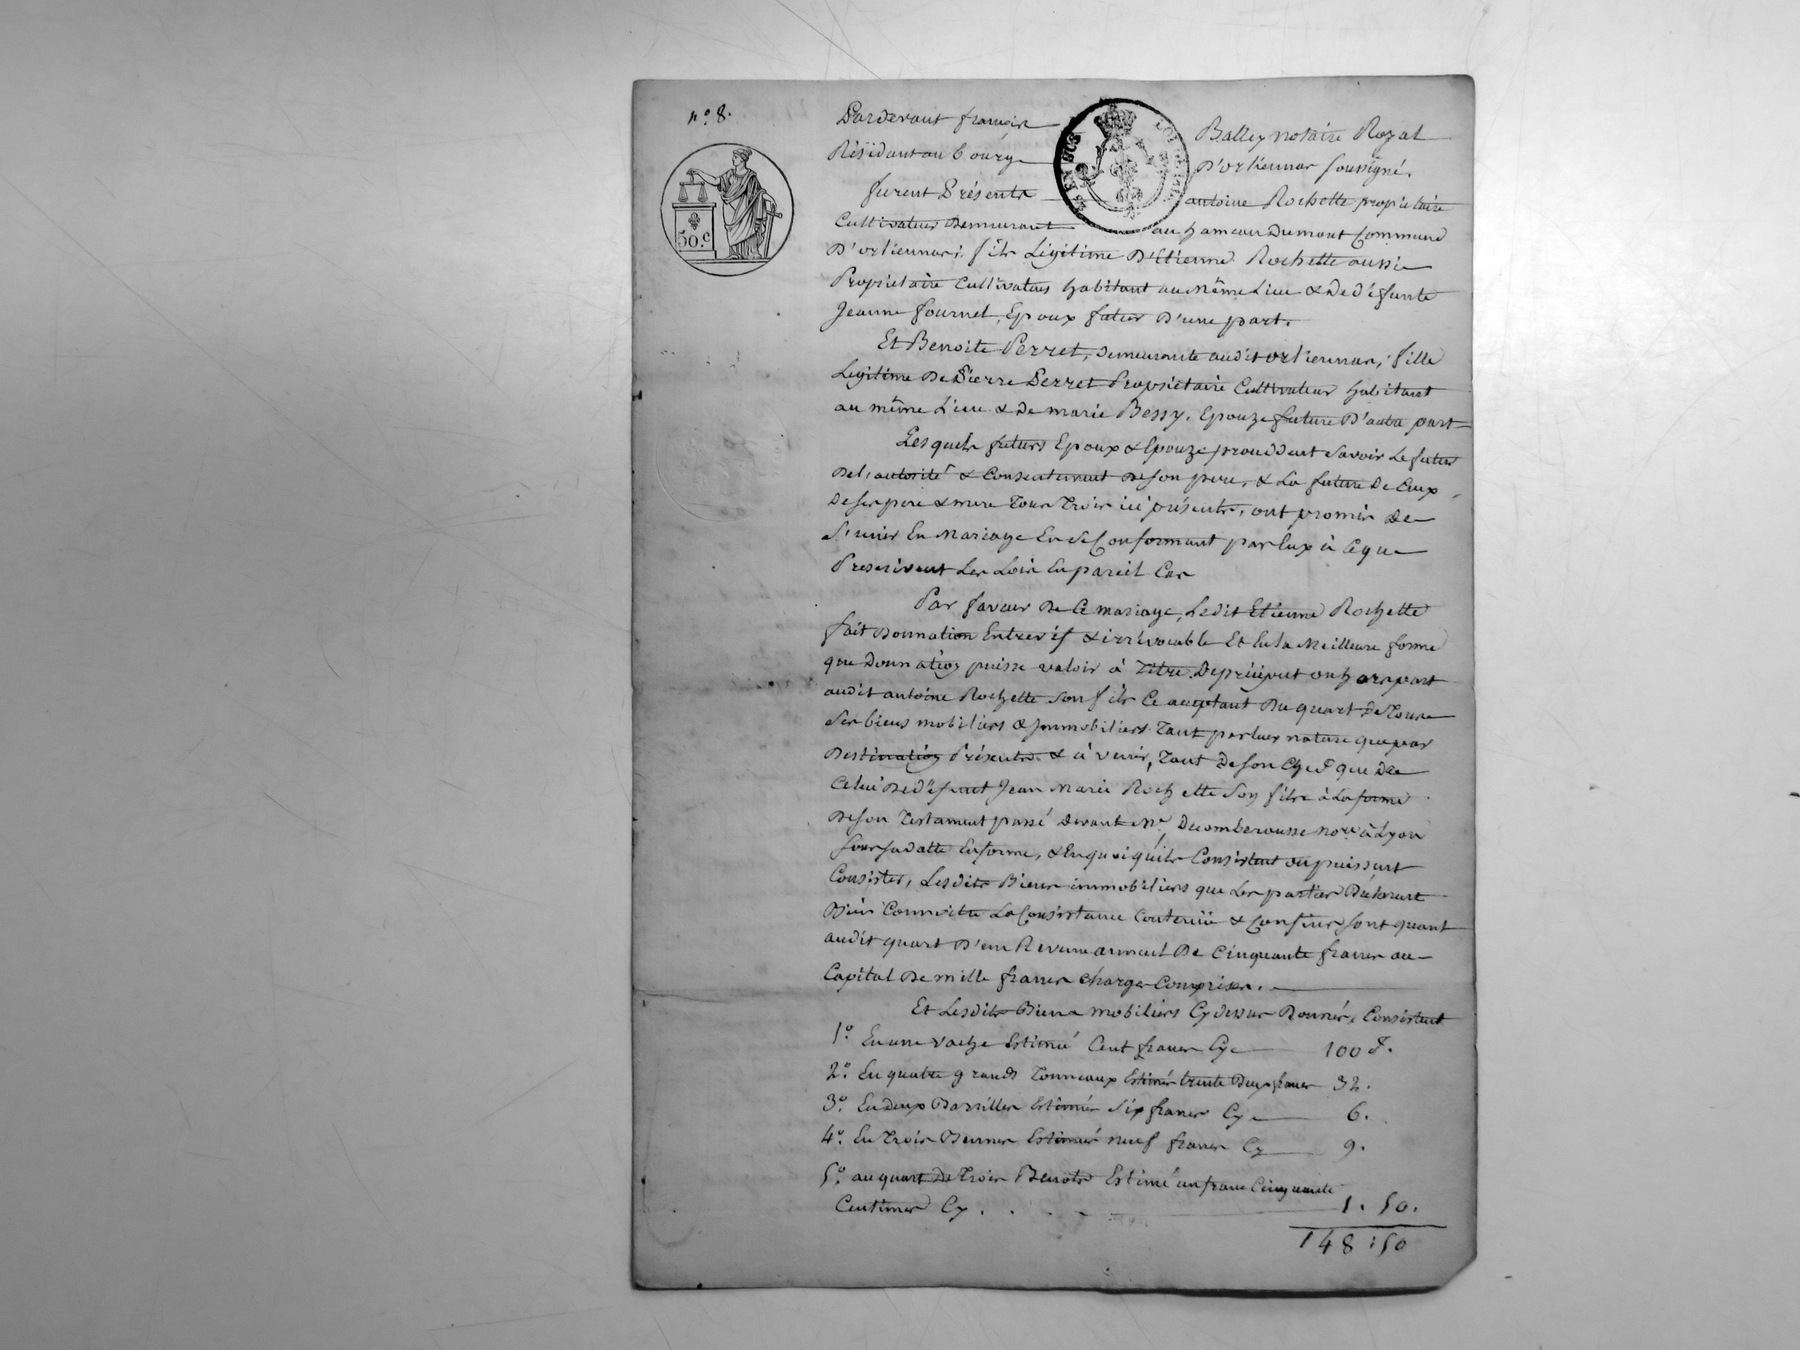 n.º 8.
50.c
Pardevant françois Balley notaire Royal
Résidant au bourg D'orliennas soussigné.
furent Présents antoine Rochette propriétaire
Cultivateur Demeurant au hameau Dumont Commune
D'orliennas; fils Légitime D'Etienne Rochette aussi
Propriétaire Cultivateur habitant au Même Lieu & De Défunte
Jeanne fournel, Epoux futur D'une part.
Et Benoite Perret, demeurante audit orliennas, fille
Legitime De Pierre Perret Propriétaire Cultivateur habitant
au même Lieu & De marie Bessy, Epouze future D'autre part
Lesquels futurs Epoux & Epouze procédant savoir Le futur
De l'autorité & Consentement De son pere, & La future De Ceux
De ses pere & mere Tous Trois ici présents, ont promis De
S'unir En Mariage En se Conformant par Eux à Ceque
Prescrivent Les Loix En pareil Cas
Par faveur De Ce mariage, Ledit Etienne Rochette
fait Donnation Entrevif & irrévocable Et En la Meilleure forme
que Donnation puisse valoir à Titre De préciput ou hors part
audit antoine Rochette son fils Ce acceptant Du quart De Tous
Ses biens mobiliers & Immobiliers Tant par leur nature que par
Destination Présents & à venir, Tant De son Chef que De
Celui De Défunt Jean Marie Rochette Son fils à La forme
De son Testament passé Devant Me. Decomberousse nore. à Lyon
Sous sa datte En forme, & En quoi qu'ils Consistent ou puissent
Consister, Lesdits Biens immobiliers que Les parties Déclarent
Bien Connoitre La Consistance Contenüe & Confins, sont quant
audit quart D'un Revenu annuel De Cinquante francs au
Capital De mille francs charges Comprises.
Et Lesdits Biens mobiliers Cy dessus Donnés, Consistent
1.º En une vache Estimée Cent francs Cy 100 f.
2.º En quatre grands Tonneaux Estimés trente Deux francs 32.
3.º En Deux Barrilles Estimés Six francs Cy 6.
4.º En Trois Bennes Estimées neuf francs Cy 9.
5.º au quart De Trois Benots Estimé un franc Cinquante
Centimes Cy . . . 1. 50.
148 : 50